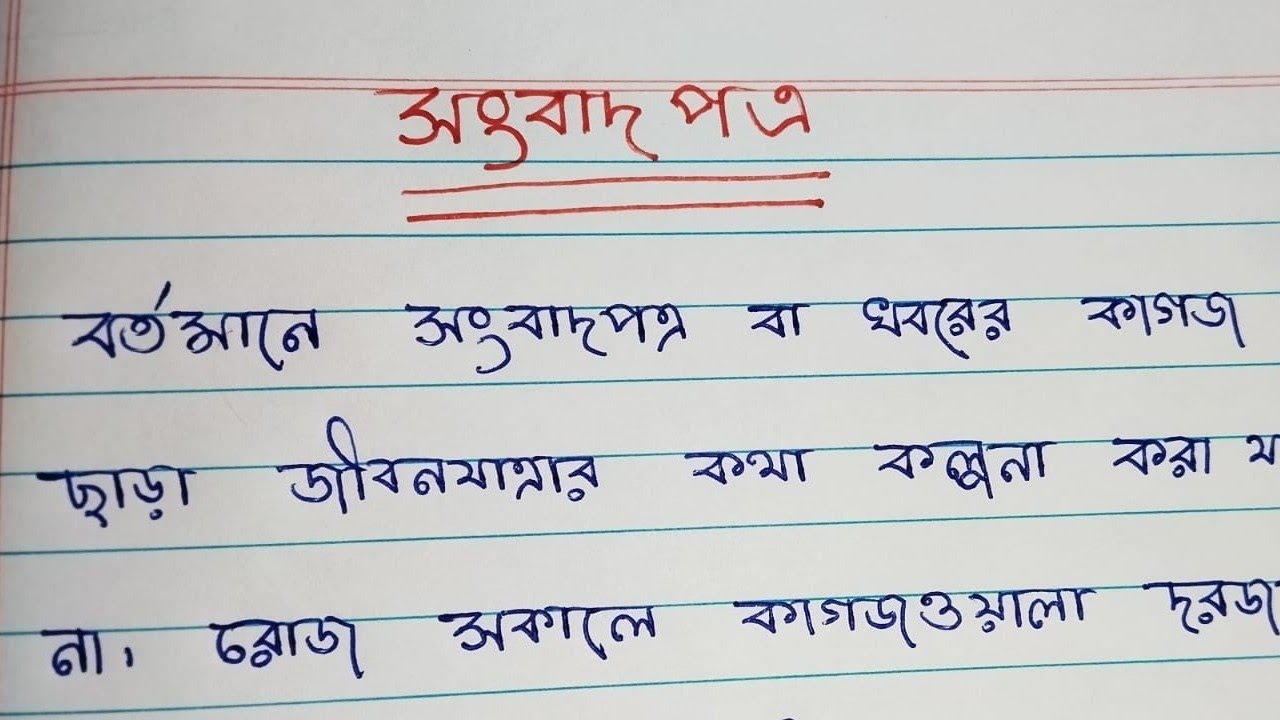 সংবাদপত্র
বর্তমানে সংবাদপত্র বা খবরের কাগজ
ছাড়া জীবনযাত্রার কথা কল্পনা করা য
না। রোজ সকালে কাগজওয়ালা দরজ